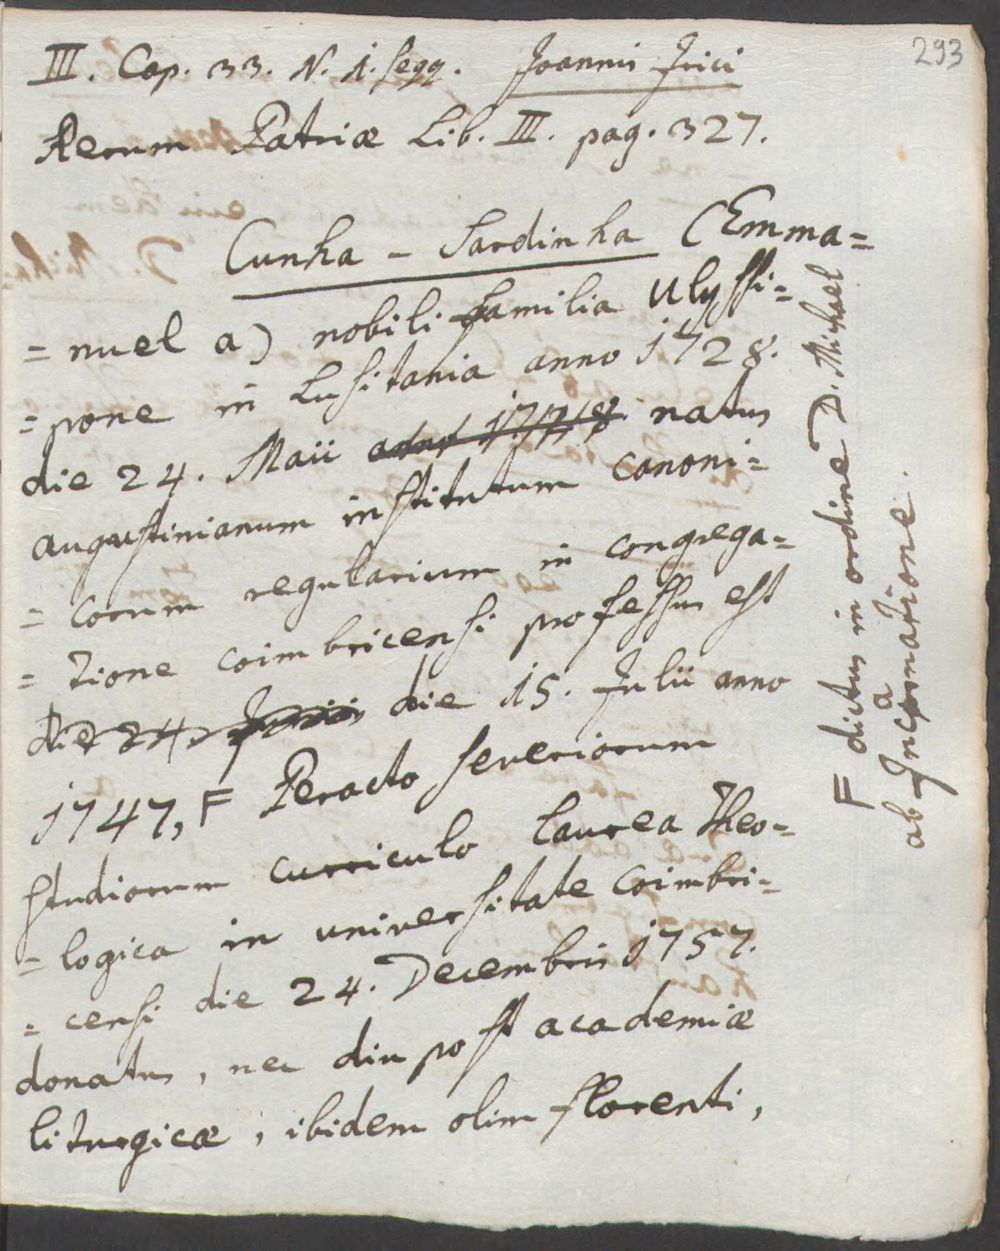 293
III. Cap. 33. N. 1. seqq. Joannis Irici
Rerum Patriæ Lib. III. pag. 327.
Cunha - Sardinha (Emma=
= nuel a) nobili familia Ulyssi=
= pone in Lusitania anno 1728.
die 24. Maii natus
augustinianum institutum canoni=
= corum regularium in congrega=
= tione coimbricensi professus est
die 24. Junii die 15. Julii anno
1747, F Peracto severiorum
studiorum curriculo laurea Theo=
= logica in universitate Coimbri=
= censi die 24. Decembris 1757.
donatus, nec diu post academiæ
liturgicæ, ibidem olim florenti,
F dictus in ordine D. Michael
ab Incarnatione.